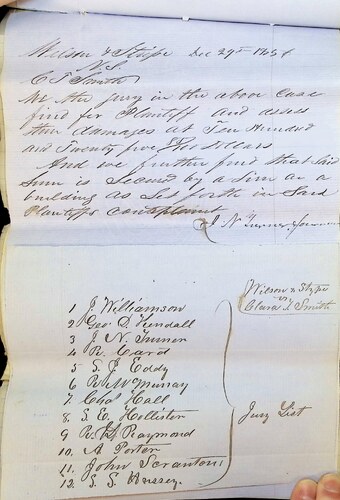 Wilson & Stripe Dec 29th 1858
V.S.
C T Smith
We the jury in the above case
find for Plantiff and asses
thur damages at Ten Hundred
and Twenty five dollars
And we further find that said
Sum is Secured by a Lien on a
building as Set forth in Said
Plantiffs complaint
J N Turner
Wilson & Stype
vs
Clara T Smith
1 J. Williamson
2 Geo D. Kendall
3 J. N. Turner
4 R. Card
5 S. J Eddy
6 R McMurray
7 Chas Hall
8. S. E. Hollister
9 R. H Raymond
10. A Porter
11. John Scranton
12. S. S. Hussey
Jury List